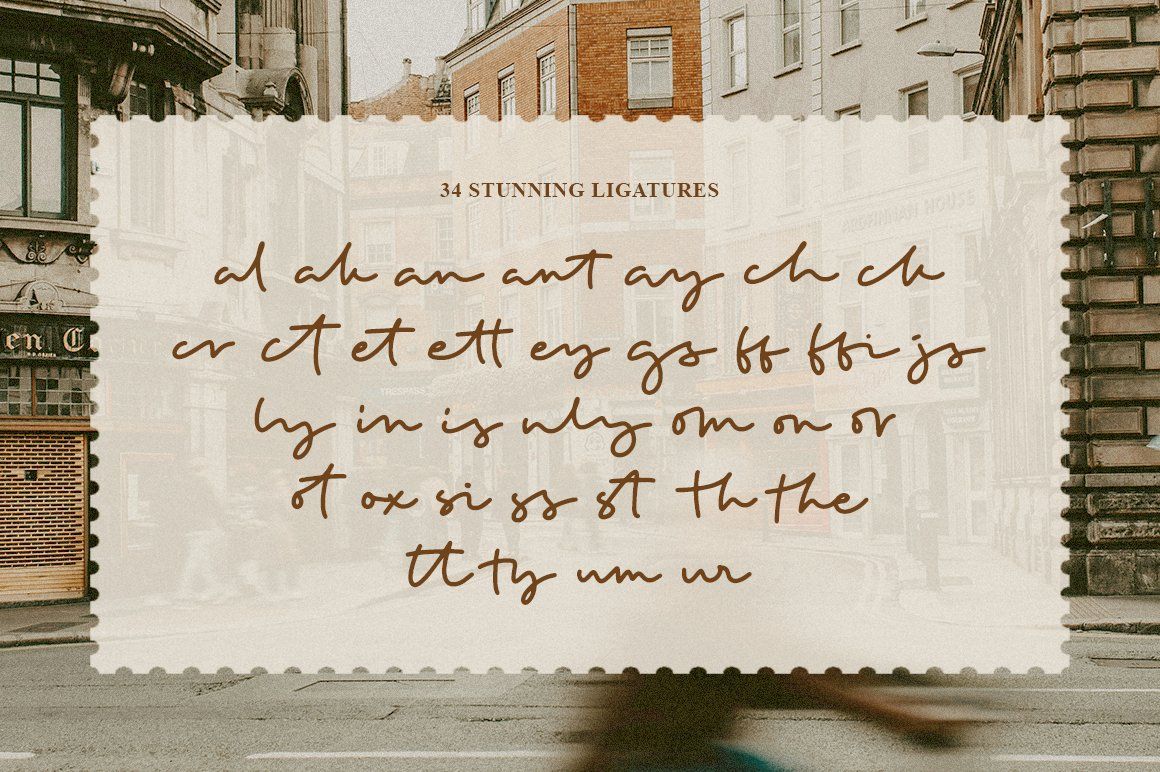 34 STUNNING LIGATURES
HOUSE
al ak an ant ay ch ck
en C
cr ct et ett ey gs ff ffi js
TRESPASS
ly in is nly om on or
ot ox si ss st th the
tt ty um ur